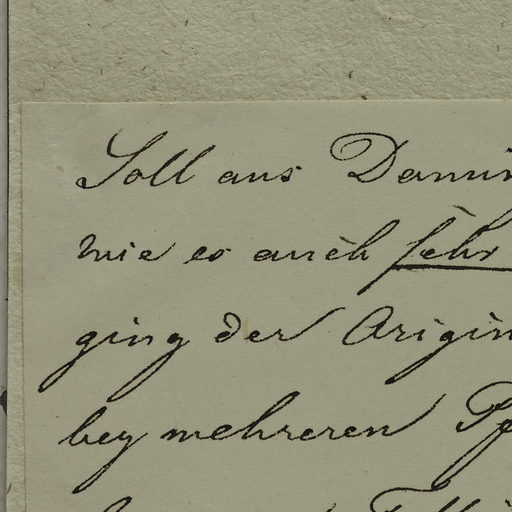 Soll aus Domin
wie es auch sehr
ging der Origin
bey mehreren Pf